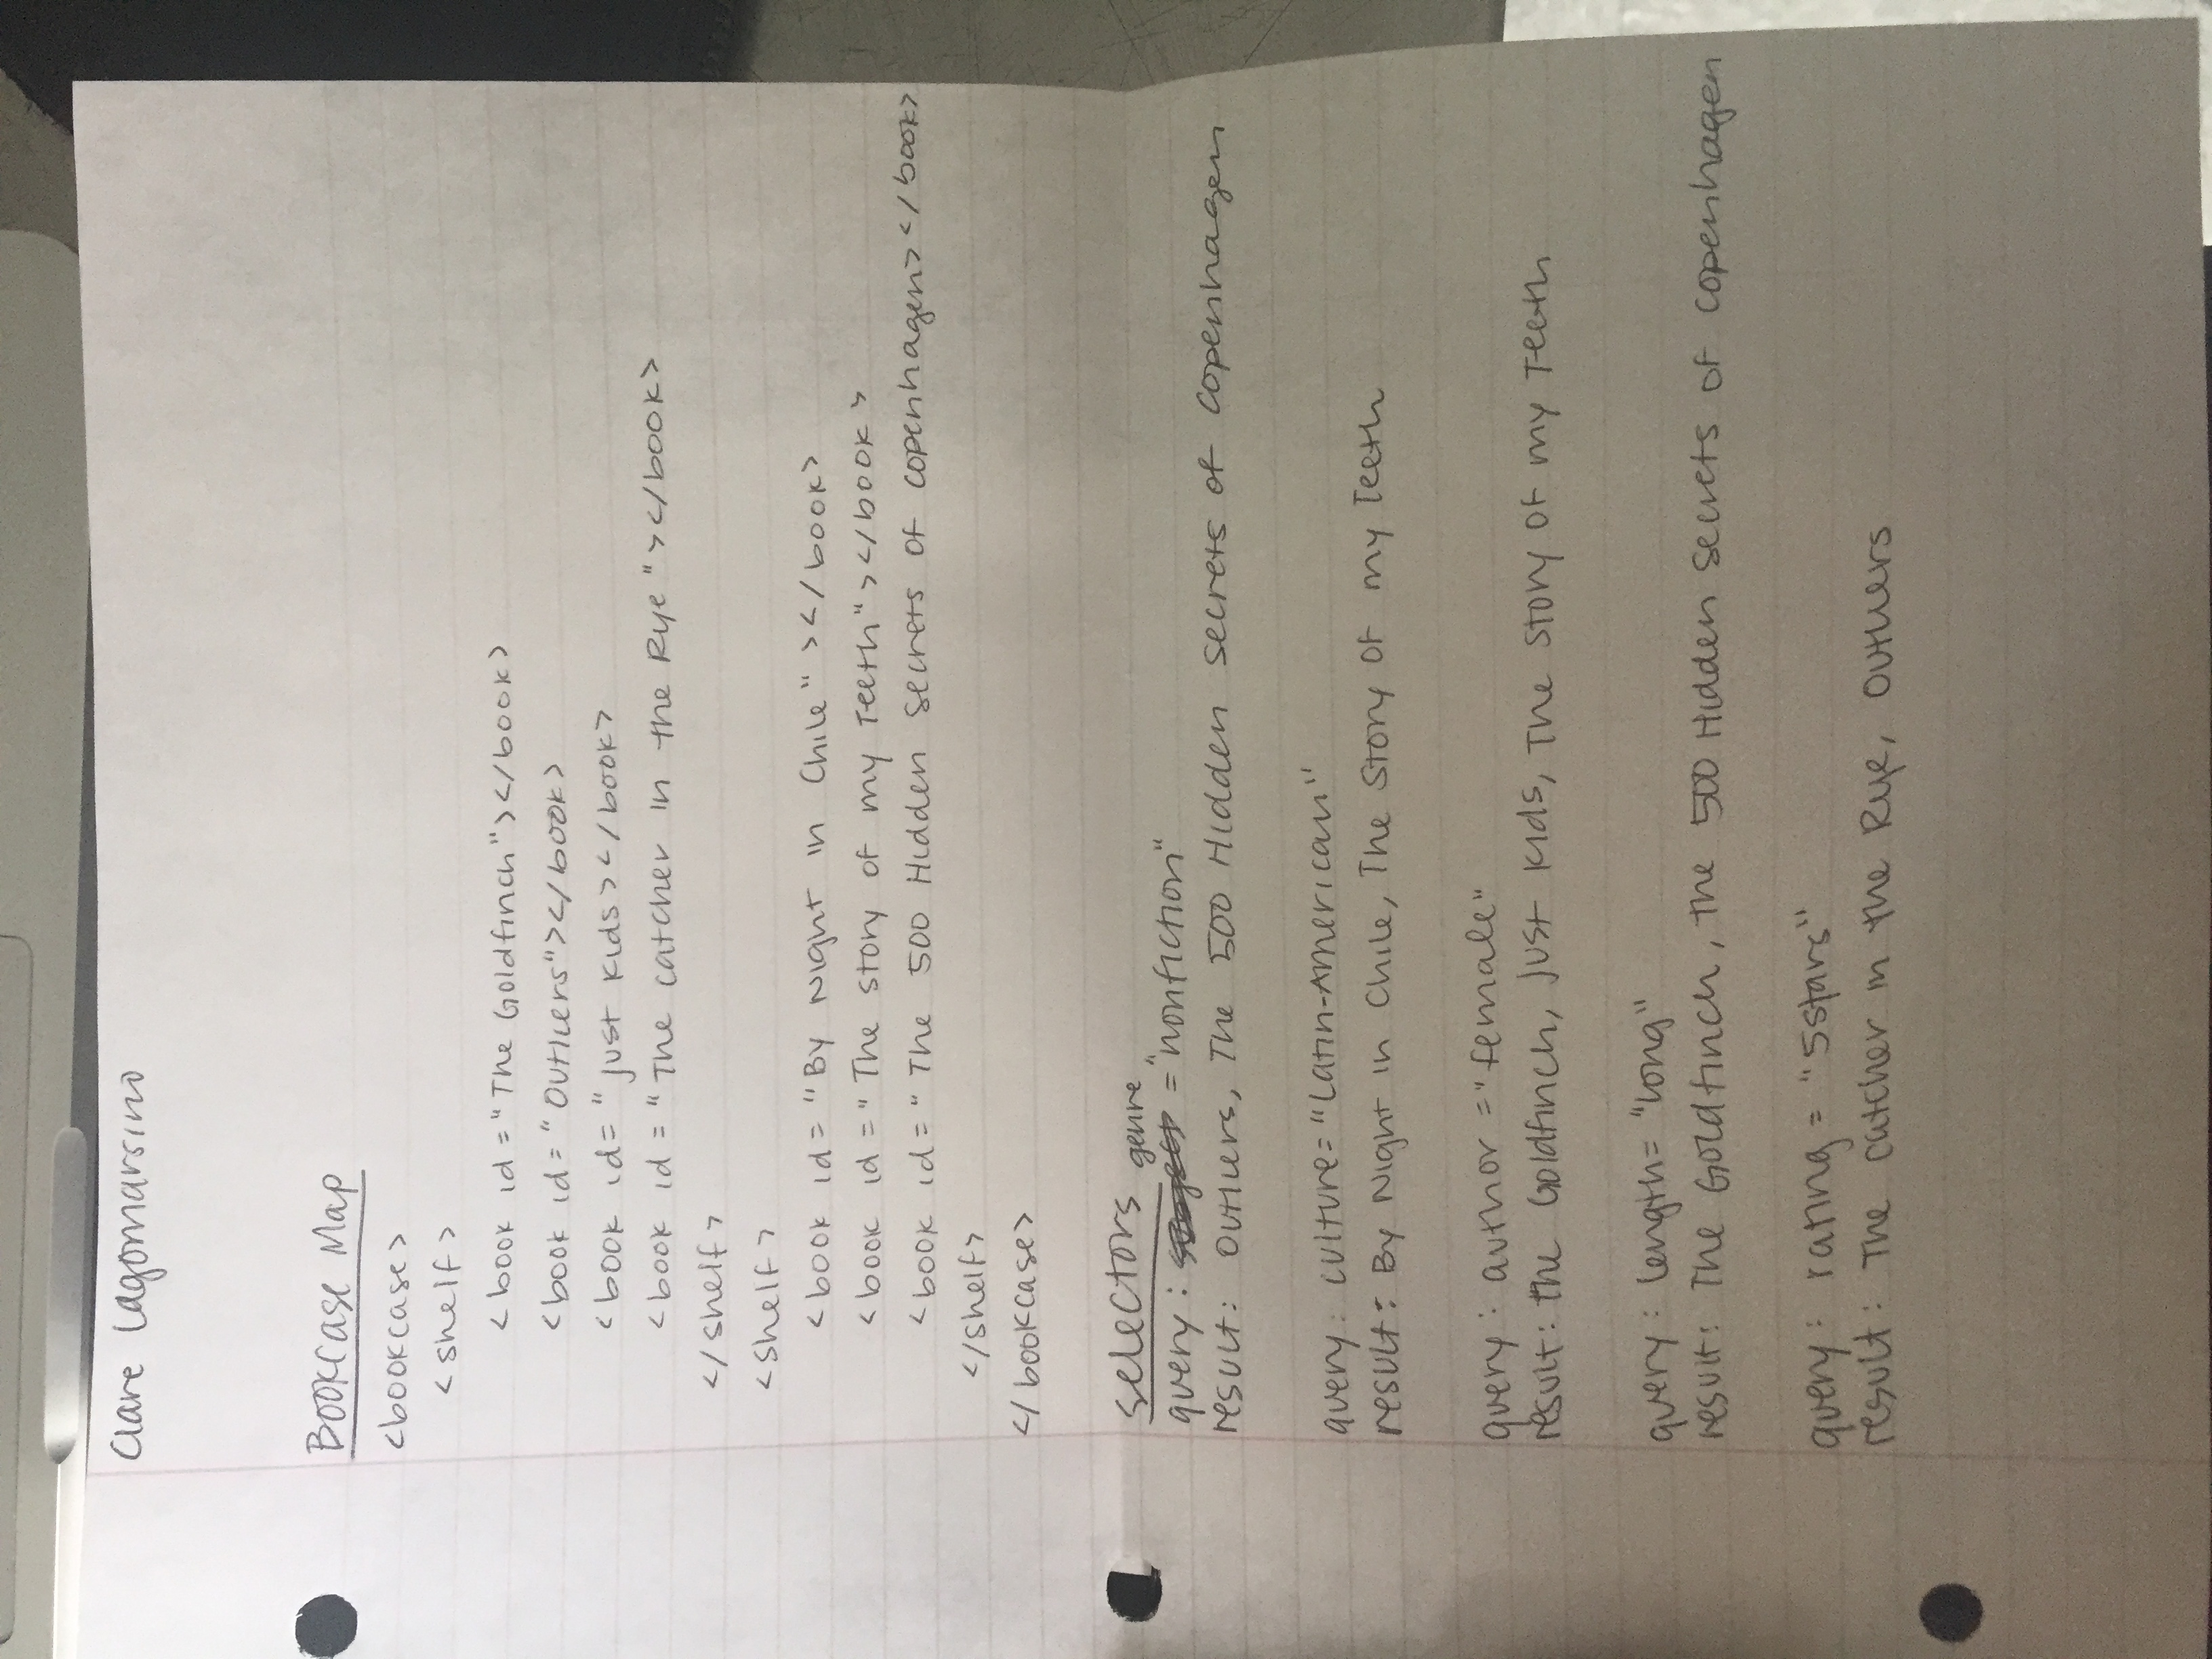 Clare Lagomarsino
Bookcase Map
<bookcase>
<shelf>
<book id="The Goldfinch"></book>
<book id="Outliers"></book>
<book id="Just Kids></book>
<book id="The Catcher in the Rye"></book>
</shelf>
<shelf>
<book id="By Night in Chile"></book>
<book id="The Story of my Teeth"></book>
<book id="The 500 Hidden Secrets of Copenhagen></book>
</shelf>
</bookcase>
selectors
query: genre="nonfiction"
result: Outliers, The 500 Hidden Secrets of Copenhagen
query: culture="Latin-American"
result: By Night in Chile, The Story of my Teeth
query: author="female"
result: the Goldfinch, Just Kids, The Story of my Teeth
query: length="long"
result: The Goldfinch, the 500 Hidden Secrets of Copenhagen
query: rating="5stars"
result: The Catcher in the Rye, Outliers